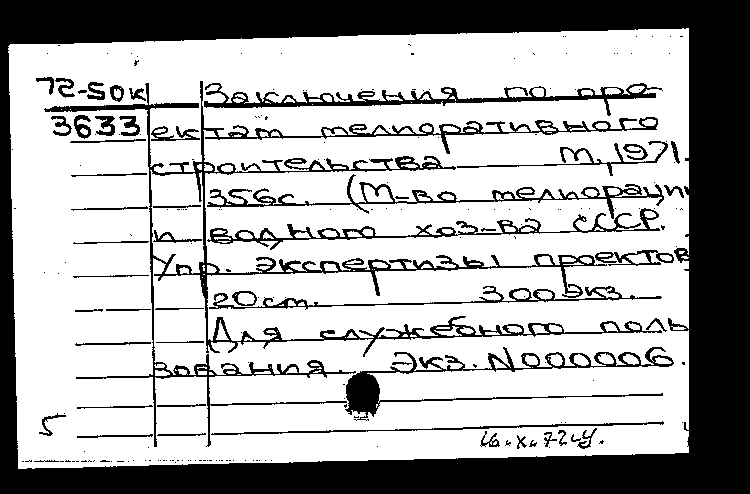 72-50к Заключения по про-
3633 ектам мелиоративного
строительства. М., 1971.
356с. (М-во мелиорации
и водного хоз-ва СССР.
Упр. экспертизы проектов
20см. 300экз.
Для служебного поль
зования. Экз. N000006.
5